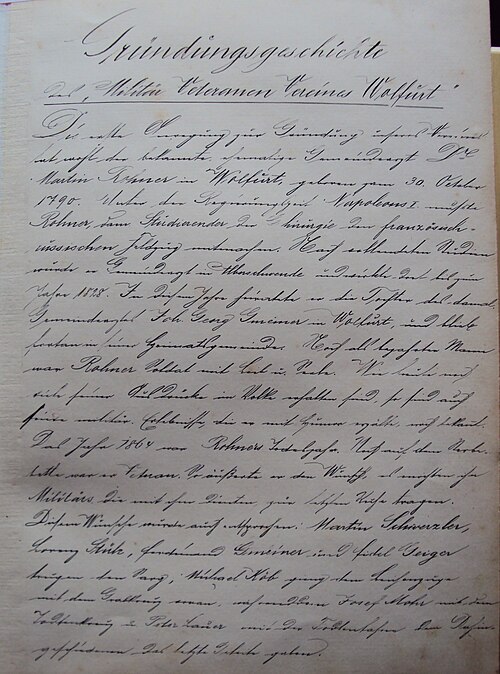 Gründungsgeschichte
des „Militär Veteranen Vereines Wolfurt"
Die erste Anregung zur Gründung unseres Vereines
hat wohl der bekannte, ehemalige Gemeindearzt Dr.
Martin Rohner in Wolfurt, geboren am 30. October
1790. Unter der Regierungszeit Napoleons I. mußte
Rohner, als Studierender der Chirurgie den französisch-
russischen Feldzug mitmachen. Nach vollendeten Studien
wurde er Gemeindearzt in Alberschwende und wirkte dort bis zum
Jahre 1828. In diesem Jahre heiratete er die Tochter des
Gemeindearztes Joh. Georg Gmeiner in Wolfurt, und blieb
fortan in seiner Heimatsgemeinde. Noch als bejahrter Mann
war Rohner Soldat mit Leib u. Seele. Wie heute noch
viele seiner im Volke erhalten sind, so sind auch
seine militär. Erlebnisse, die er mit Humor erzählte, noch bekannt.
Das Jahr 1864 war Rohners Todesjahr. Noch auf dem Sterbe-
bette war er Veteran. So äußerte er den Wunsch, es möchten ihn
Militärs, die mit ihm dienten zur letzten Ruhe tragen.
Diesem Wunsche wurde auch entsprochen: Martin Schwerzler,
Lorenz Stülz, Ferdinand Gmeiner und Fidel Geiger
trugen den Sarg, Michael Köb ging dem Leichenzuge
mit dem Grabkreuz voran, während Josef Mohr mit dem
u. Peter Lauer mit der Todtenfahne dem Dahin-
geschiedenen das letzte Geleite gaben.